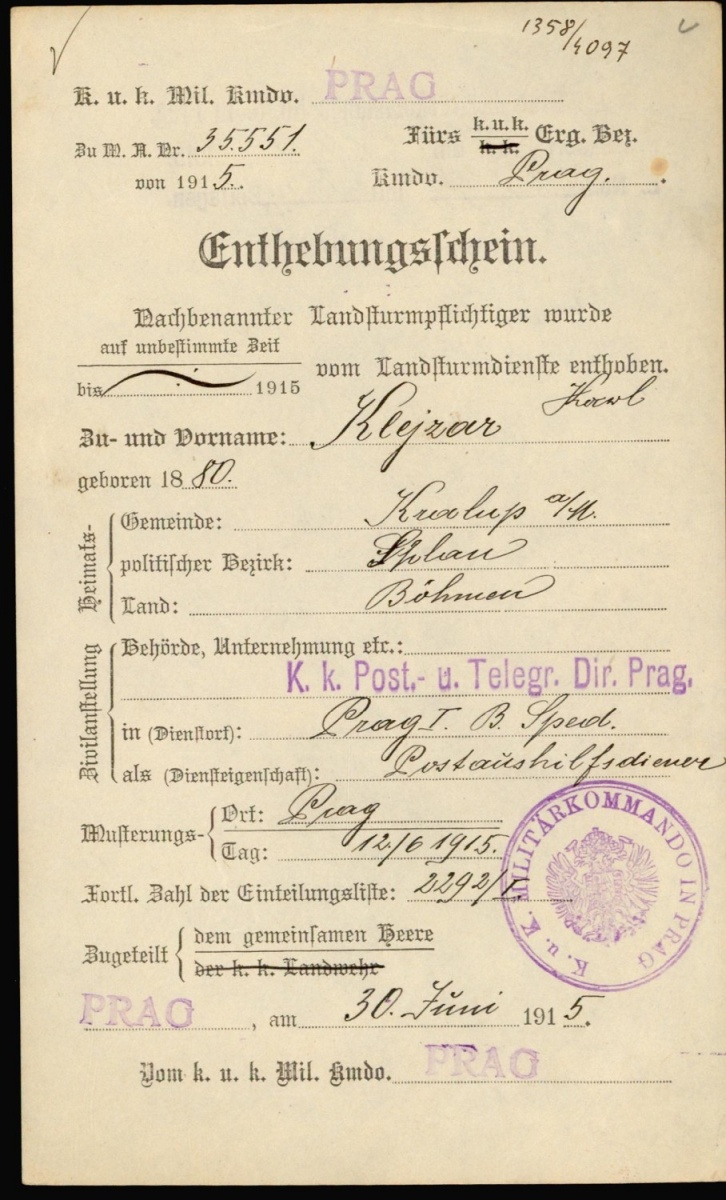 1358/4097
K. u. k. Mil. Kmdo. PRAG
Zu M. A. Nr. 35.551.
von 1915.
Fürs k.u.k. k.k. Erg. Bez.
Kmdo. Prag.
Enthebungsschein.
Nachbenannter Landsturmpflichtiger wurde
auf unbestimmte Zeit
bis 1915
vom Landsturmdienste enthoben.
Zu- und Vorname: Klejzar Karl
geboren 1880.
Heimats-
Gemeinde: Kralup a/M.
politischer Bezirk: Schlan
Land: Böhmen
Zivilanstellung
Behörde, Unternehmung etc.:
K. k. Post.- u. Telegr. Dir. Prag.
in (Dienstort): Prag I. B. Sped.
als (Diensteigenschaft): Postaushilfsdiener
Musterungs-
Ort: Prag
Tag: 12/6 1915.
Fortl. Zahl der Einteilungsliste: 2292/I.
Zugeteilt
dem gemeinsamen Heere
der k. k. Landwehr
K. u. K. MILITÄRKOMMANDO IN PRAG
PRAG, am 30. Juni 1915.
Vom k. u. k. Mil. Kmdo. PRAG